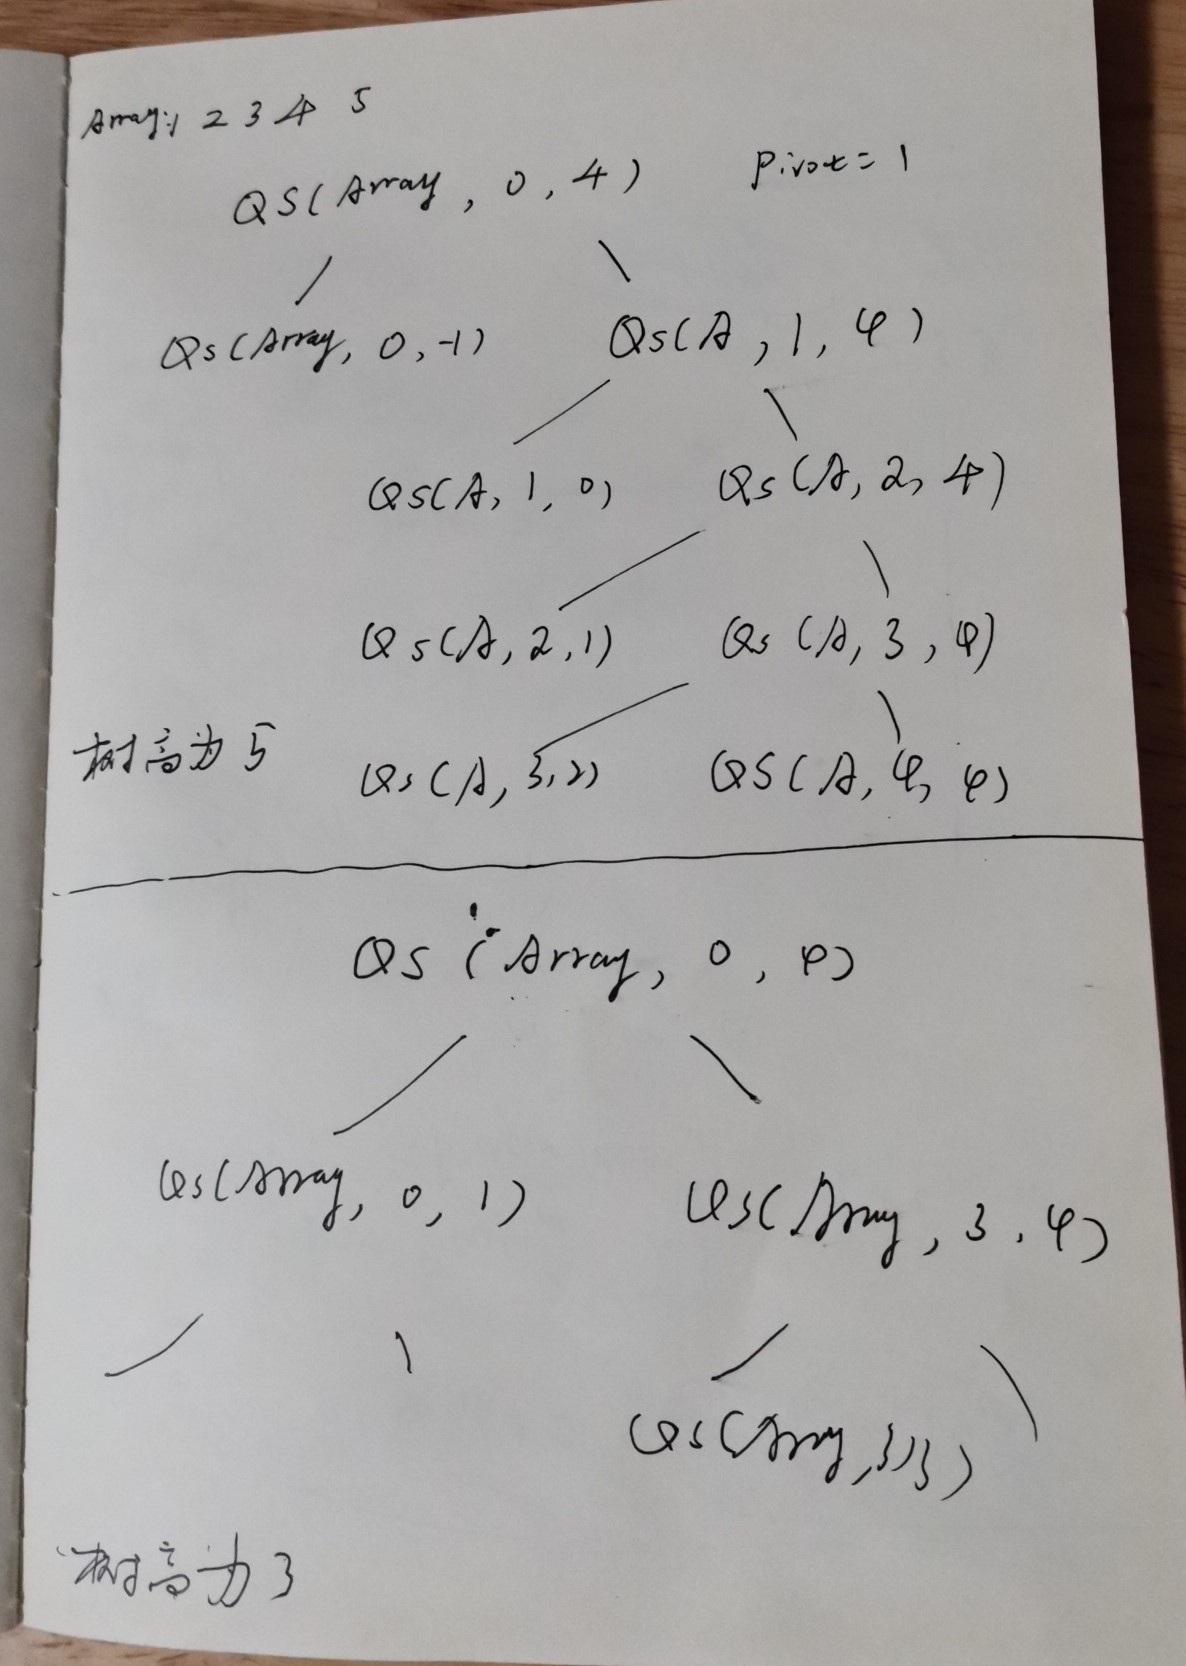 Array: 1 2 3 4 5
QS(Array, 0, 4) Pivot = 1
Qs(Array, 0, -1) Qs(A, 1, 4)
Qs(A, 1, 0) Qs(A, 2, 4)
Qs(A, 2, 1) Qs(A, 3, 4)
树高为 5
Qs(A, 3, 2) QS(A, 4, 4)
QS(Array, 0, 4)
Qs(Array, 0, 1) Qs(Array, 3, 4)
Qs(Array, 3, 3)
树高为 3